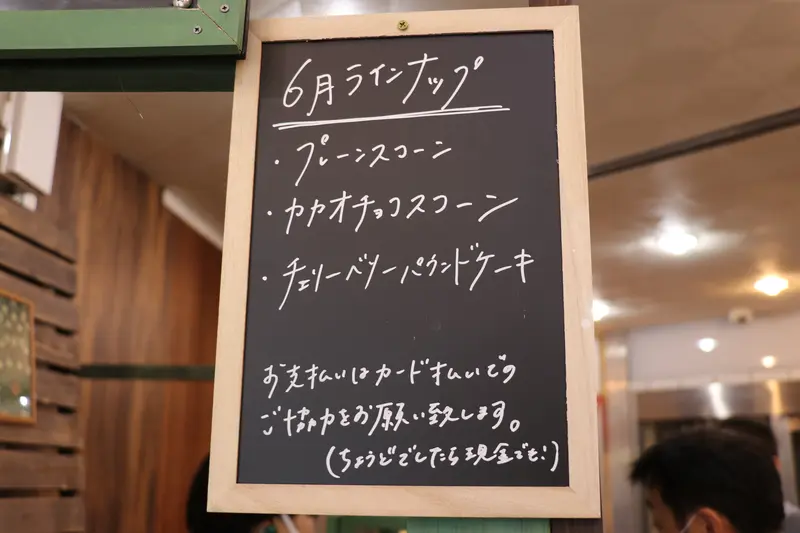 6月ラインナップ
・プレーンスコーン
・カカオチョコスコーン
・チェリーベリーパウンドケーキ
お支払いはカード払いでの
ご協力をお願い致します。
(ちょうどでしたら現金でも!)